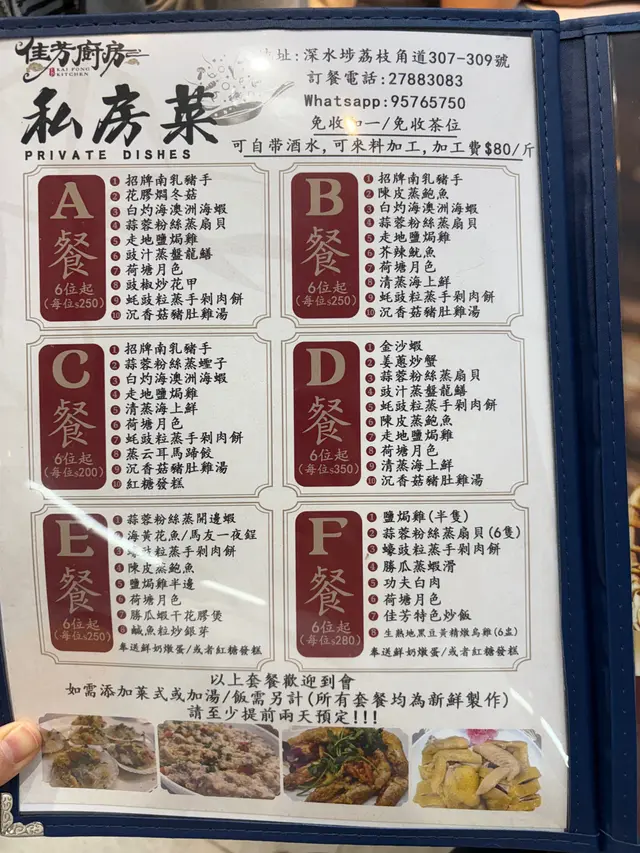 佳芳廚房
KAI FONG KITCHEN
私房菜
PRIVATE DISHES
地址:深水埗荔枝角道307-309號
訂餐電話:27883083
Whatsapp:95765750
免收加一/免收茶位
可自带酒水,可來料加工,加工費$80/斤
A
餐
6位起
(每位$250)
1 招牌南乳豬手
2 花膠燜冬菇
3 白灼海澳洲海蝦
4 蒜蓉粉絲蒸扇貝
5 走地鹽焗雞
6 豉汁蒸盤龍鱔
7 荷塘月色
8 豉椒炒花甲
9 蚝豉粒蒸手剁肉餅
10 沉香菇豬肚雞湯
B
餐
6位起
(每位$250)
1 招牌南乳豬手
2 陳皮蒸鮑魚
3 白灼海澳洲海蝦
4 蒜蓉粉絲蒸扇貝
5 走地鹽焗雞
6 芥辣魷魚
7 荷塘月色
8 清蒸海上鮮
9 蚝豉粒蒸手剁肉餅
10 沉香菇豬肚雞湯
C
餐
6位起
(每位$200)
1 招牌南乳豬手
2 蒜蓉粉絲蒸蟶子
3 白灼海澳洲海蝦
4 走地鹽焗雞
5 清蒸海上鮮
6 荷塘月色
7 蚝豉粒蒸手剁肉餅
8 蒸云耳馬蹄餃
9 沉香菇豬肚雞湯
10 紅糖發糕
D
餐
6位起
(每位$350)
1 金沙蝦
2 姜蔥炒蟹
3 蒜蓉粉絲蒸扇貝
4 豉汁蒸盤龍鱔
5 蚝豉粒蒸手剁肉餅
6 陳皮蒸鮑魚
7 走地鹽焗雞
8 荷塘月色
9 清蒸海上鮮
10 沉香菇豬肚雞湯
E
餐
6位起
(每位$250)
1 蒜蓉粉絲蒸開邊蝦
2 海黃花魚/馬友一夜埕
3 蠔豉粒蒸手剁肉餅
4 陳皮蒸鮑魚
5 鹽焗雞半邊
6 荷塘月色
7 勝瓜蝦干花膠煲
8 鹹魚粒炒銀芽
奉送鮮奶燉蛋/或者紅糖發糕
F
餐
6位起
(每位$280)
1 鹽焗雞(半隻)
2 蒜蓉粉絲蒸扇貝(6隻)
3 蠔豉粒蒸手剁肉餅
4 勝瓜蒸蝦滑
5 功夫白肉
6 荷塘月色
7 佳芳特色炒飯
8 生熟地黑豆黃精燉烏雞(6盅)
奉送鮮奶燉蛋/或者紅糖發糕
以上套餐歡迎到會
如需添加菜式或加湯/飯需另計(所有套餐均為新鮮製作)
請至少提前兩天預定!!!